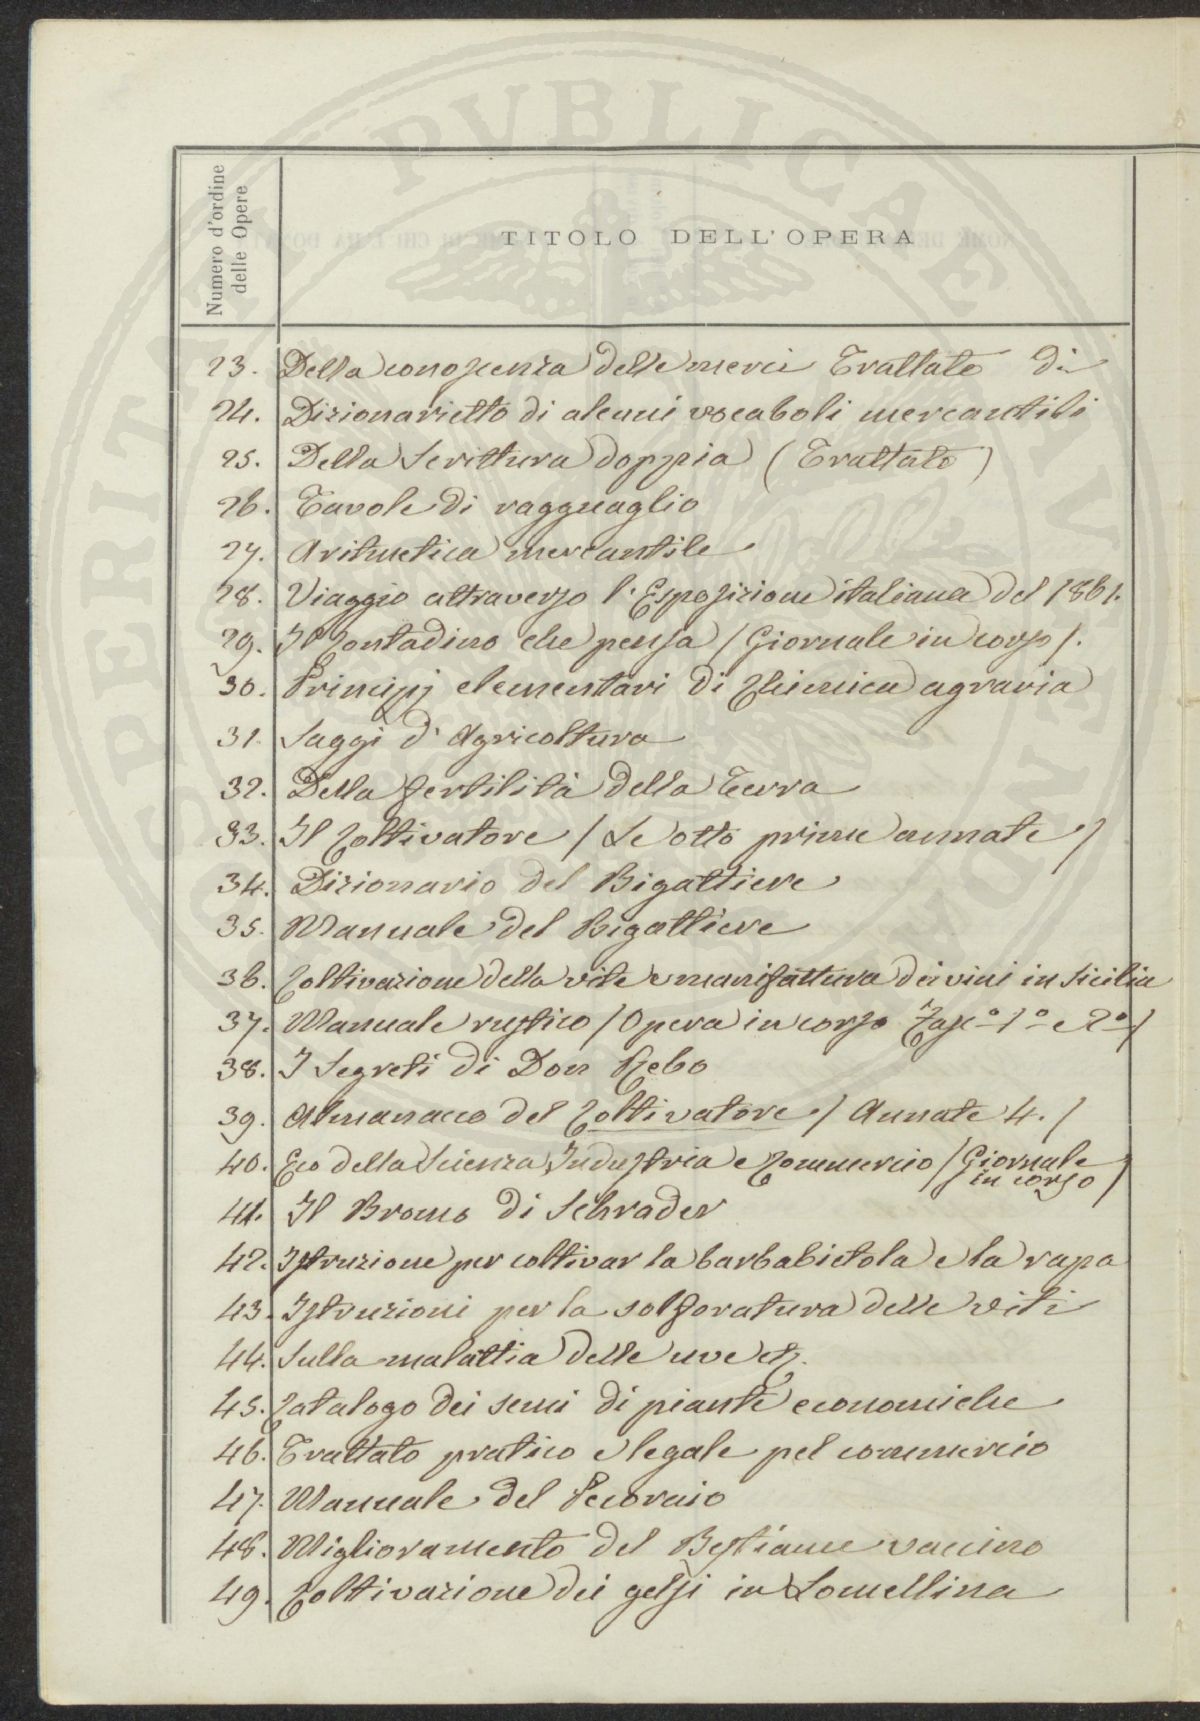 Numero d'ordine
delle Opere
TITOLO DELL'OPERA
23. Della conoscenza delle merci Trattato di
24. Dizionarietto di alcuni vocaboli mercantili
25. Della Scrittura doppia (Trattato)
26. Tavole di ragguaglio
27. Aritmetica mercantile
28. Viaggio attraverso l'Esposizione italiana del 1861.
29. Il Contadino che pensa / Giornale in corso /.
30. Principj elementari di Chimica agraria
31. Saggi d'Agricoltura
32. Della fertilità della Terra
33. Il Coltivatore / Le otto prime annate /
34. Dizionario del Bigattiere
35. Manuale del Bigattiere
36. Coltivazione della vite e manifattura dei vini in Sicilia
37. Manuale rustico / Opera in corso Fasc.º 1º e 2º /
38. I Segreti di Don Rebo
39. Almanacco del Coltivatore / Annate 4. /
40. Eco della Scienza Industria e Commercio / Giornale
in corso /
41. Il Bromo di Schrader
42. Istruzione per coltivar la barbabietola e la rapa
43. Istruzioni per la solforatura delle viti
44. Sulla malattia delle uve
45. Catalogo dei semi di piante economiche
46. Trattato pratico e legale pel commercio
47. Manuale del Pecoraio
48. Miglioramento del Bestiame vaccino
49. Coltivazione dei gelsi in Lomellina